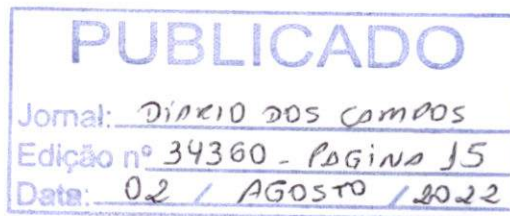 PUBLICADO
Jornal: DIÁRIO DOS CAMPOS
Edição nº 34360 - PÁGINA 15
Data: 02 / AGOSTO / 2022